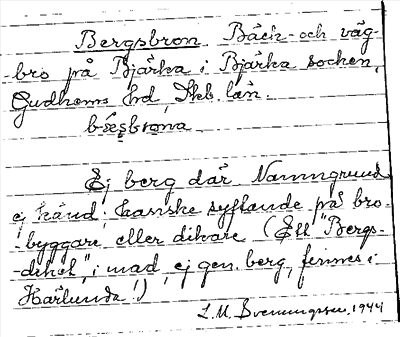 Bergsbron Bäck- och väg-
bro på Bjärka i Bjärka socken,
Gudhems hd, Skb. län.
Ej berg där. Namngrund
ej känd; kanske syftande på bro-
byggare eller dikare (Ett "Bergs-
diket", i mad, ej gen. berg, finnes i
Härlunda!)
L.M. Svenungsson, 1944